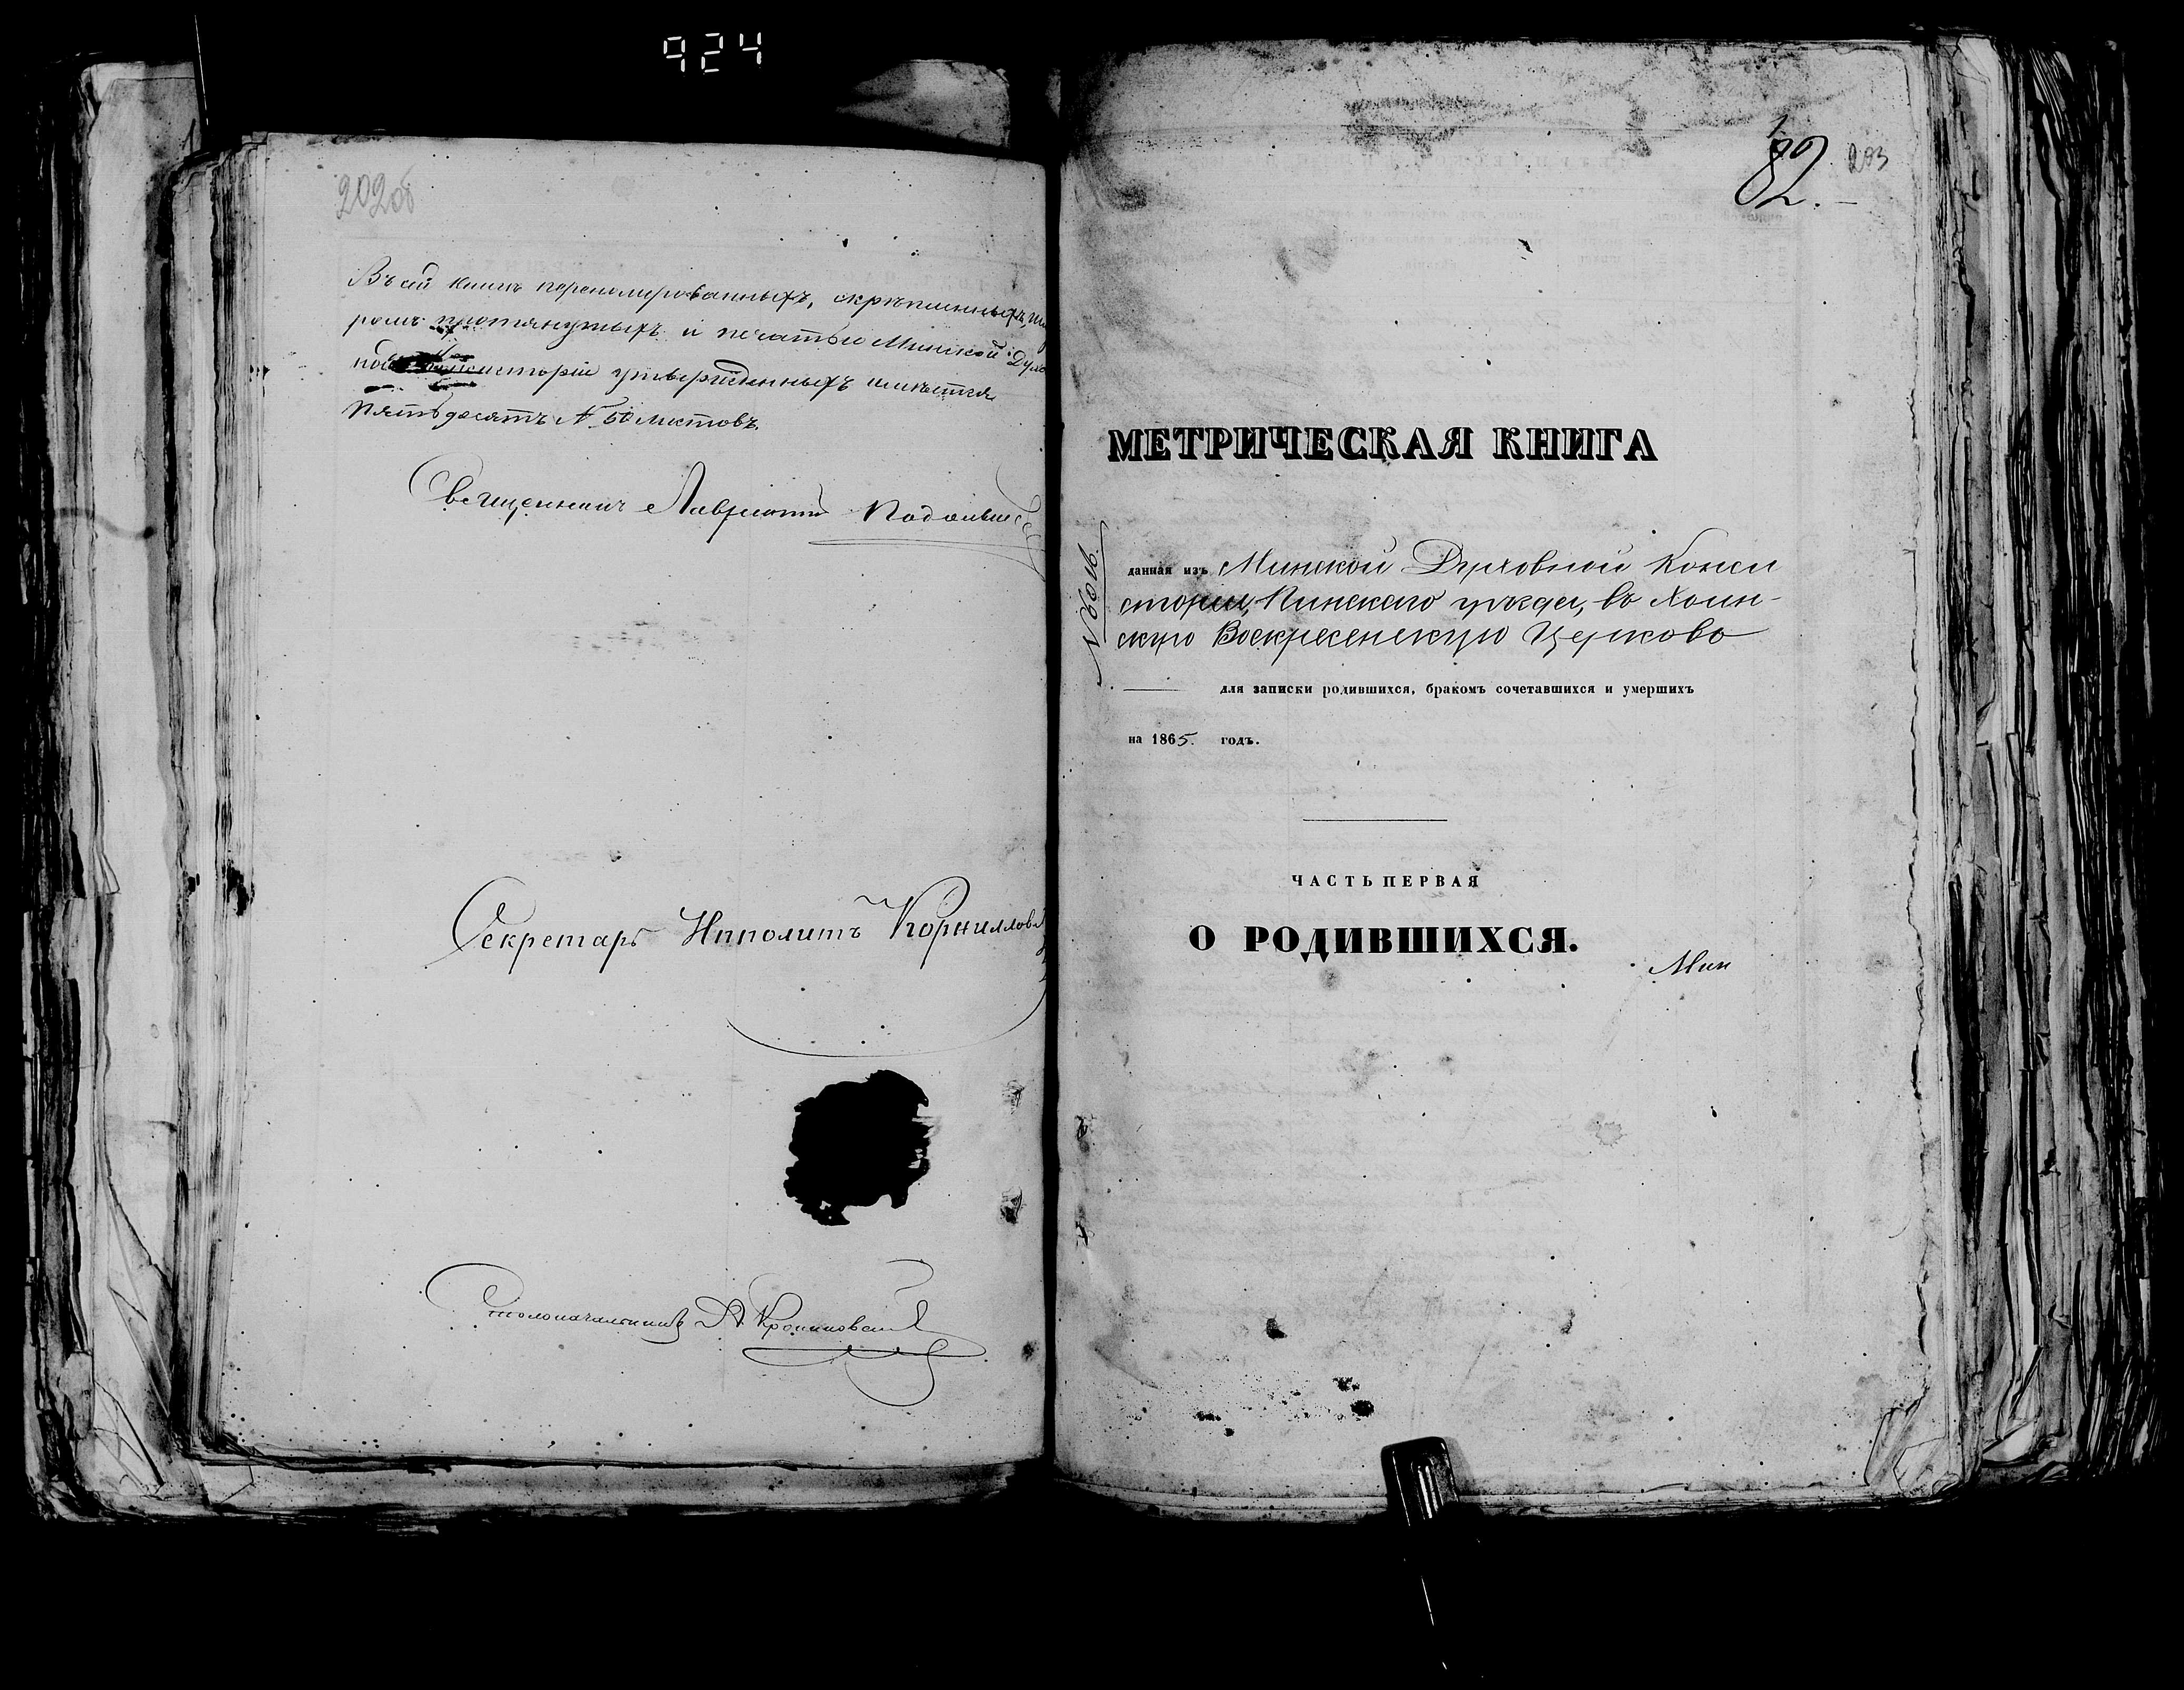 924
202об
Въ сей книгѣ перенумерованныхъ, скрѣпленныхъ,
ромъ протянутыхъ и печатью Минской Духо
утвержденныхъ имѣется
Пятьдесятъ № 50 листовъ.
Священникъ Лаврентій
Секретарь Ипполитъ Корниллов
Столоначальникъ
1
82.
203
МЕТРИЧЕСКАЯ КНИГА
данная изъ Минской Духовной Конси
сторіи, Пинскаго уѣзда, въ Хоин-
скую Воскресенскую Церковь
для записки родившихся, бракомъ сочетавшихся и умершихъ
на 1865. годъ.
ЧАСТЬ ПЕРВАЯ
О РОДИВШИХСЯ.
Мин